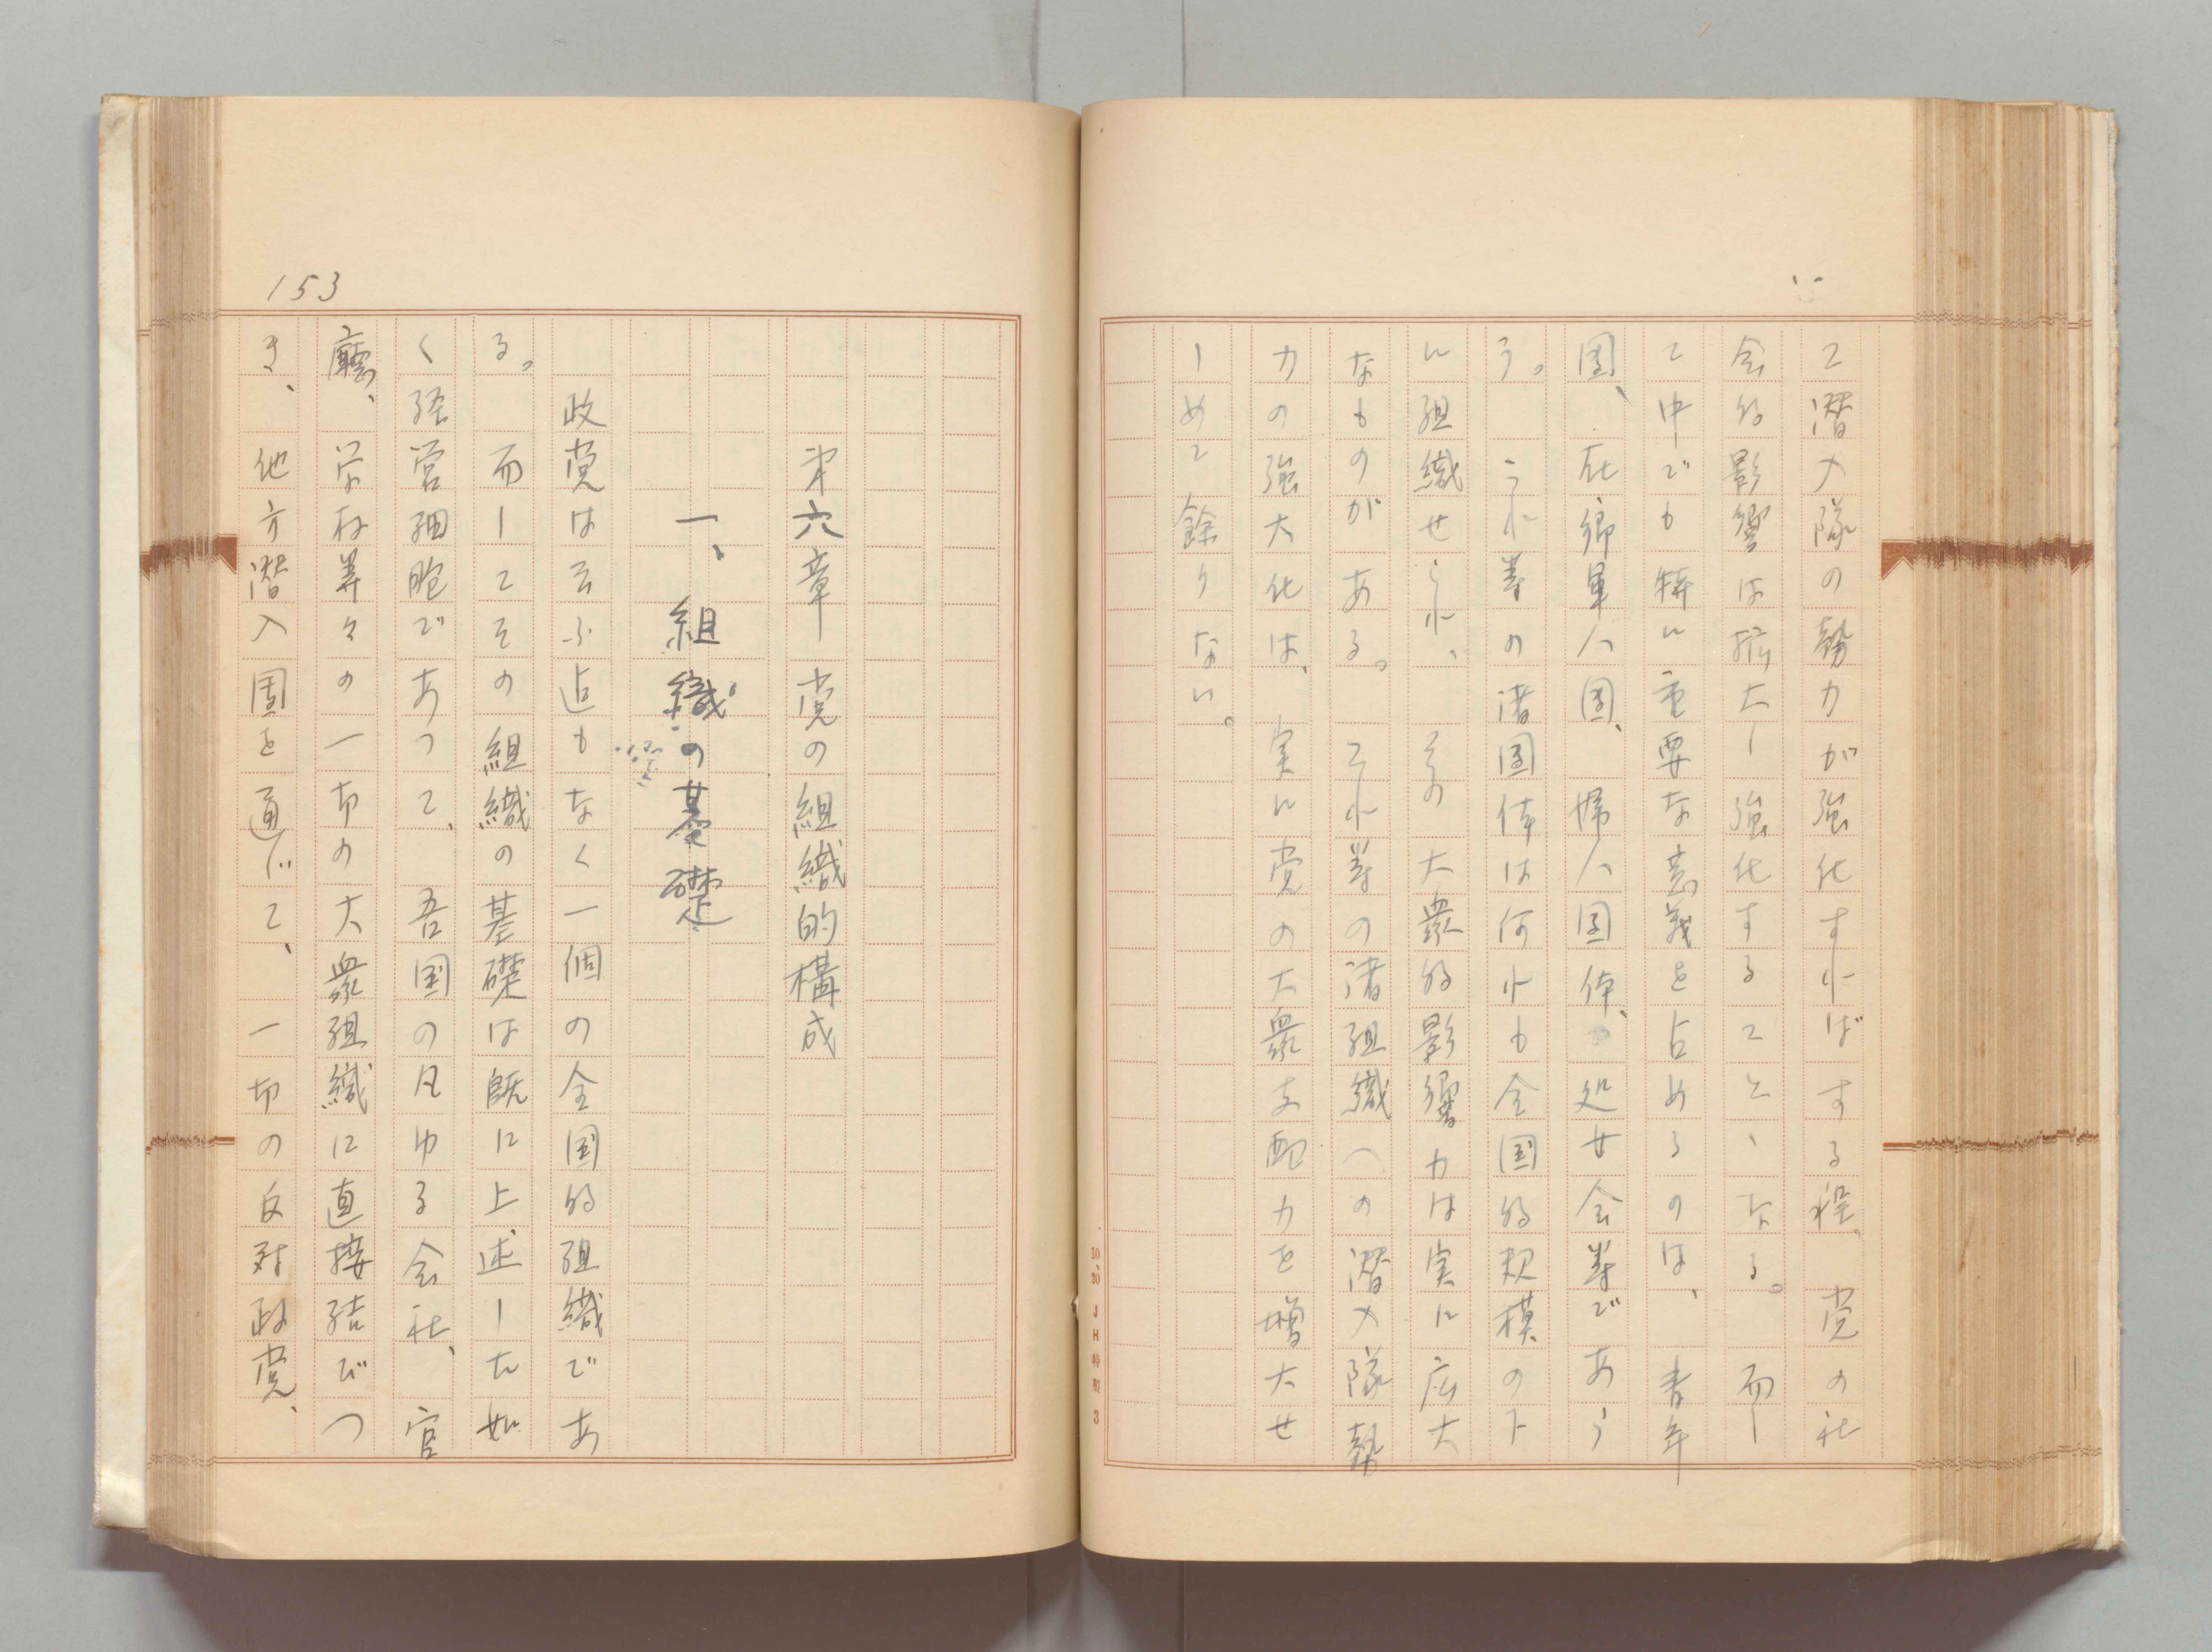 て潜入隊の勢力が強化すればする程、党の社
会的影響は拡大し強化することゝなる。而し
て中でも特に重要な意義を占めるのは、青年
団、在郷軍人団、婦人団体、処女会等であら
う。これ等の諸団体は何れも全国的規模の下
に組織せられ、その大衆的影響力は実に広大
なものがある。これ等の諸組織への潜入隊勢
力の強大化は、実に党の大衆支配力を増大せ
しめて余りない。
10、20 JH特製 3
153
第六章 党の組織的構成
一、組織の基礎
政党は云ふ迄もなく一個の全国的組織であ
る。而してその組織の基礎は既に上述した如
く経営細胞であつて、吾国の凡ゆる会社、官
廳、学校等々の一切の大衆組織に直接結びつ
き、他方潜入団を通じて、一切の反対政党、